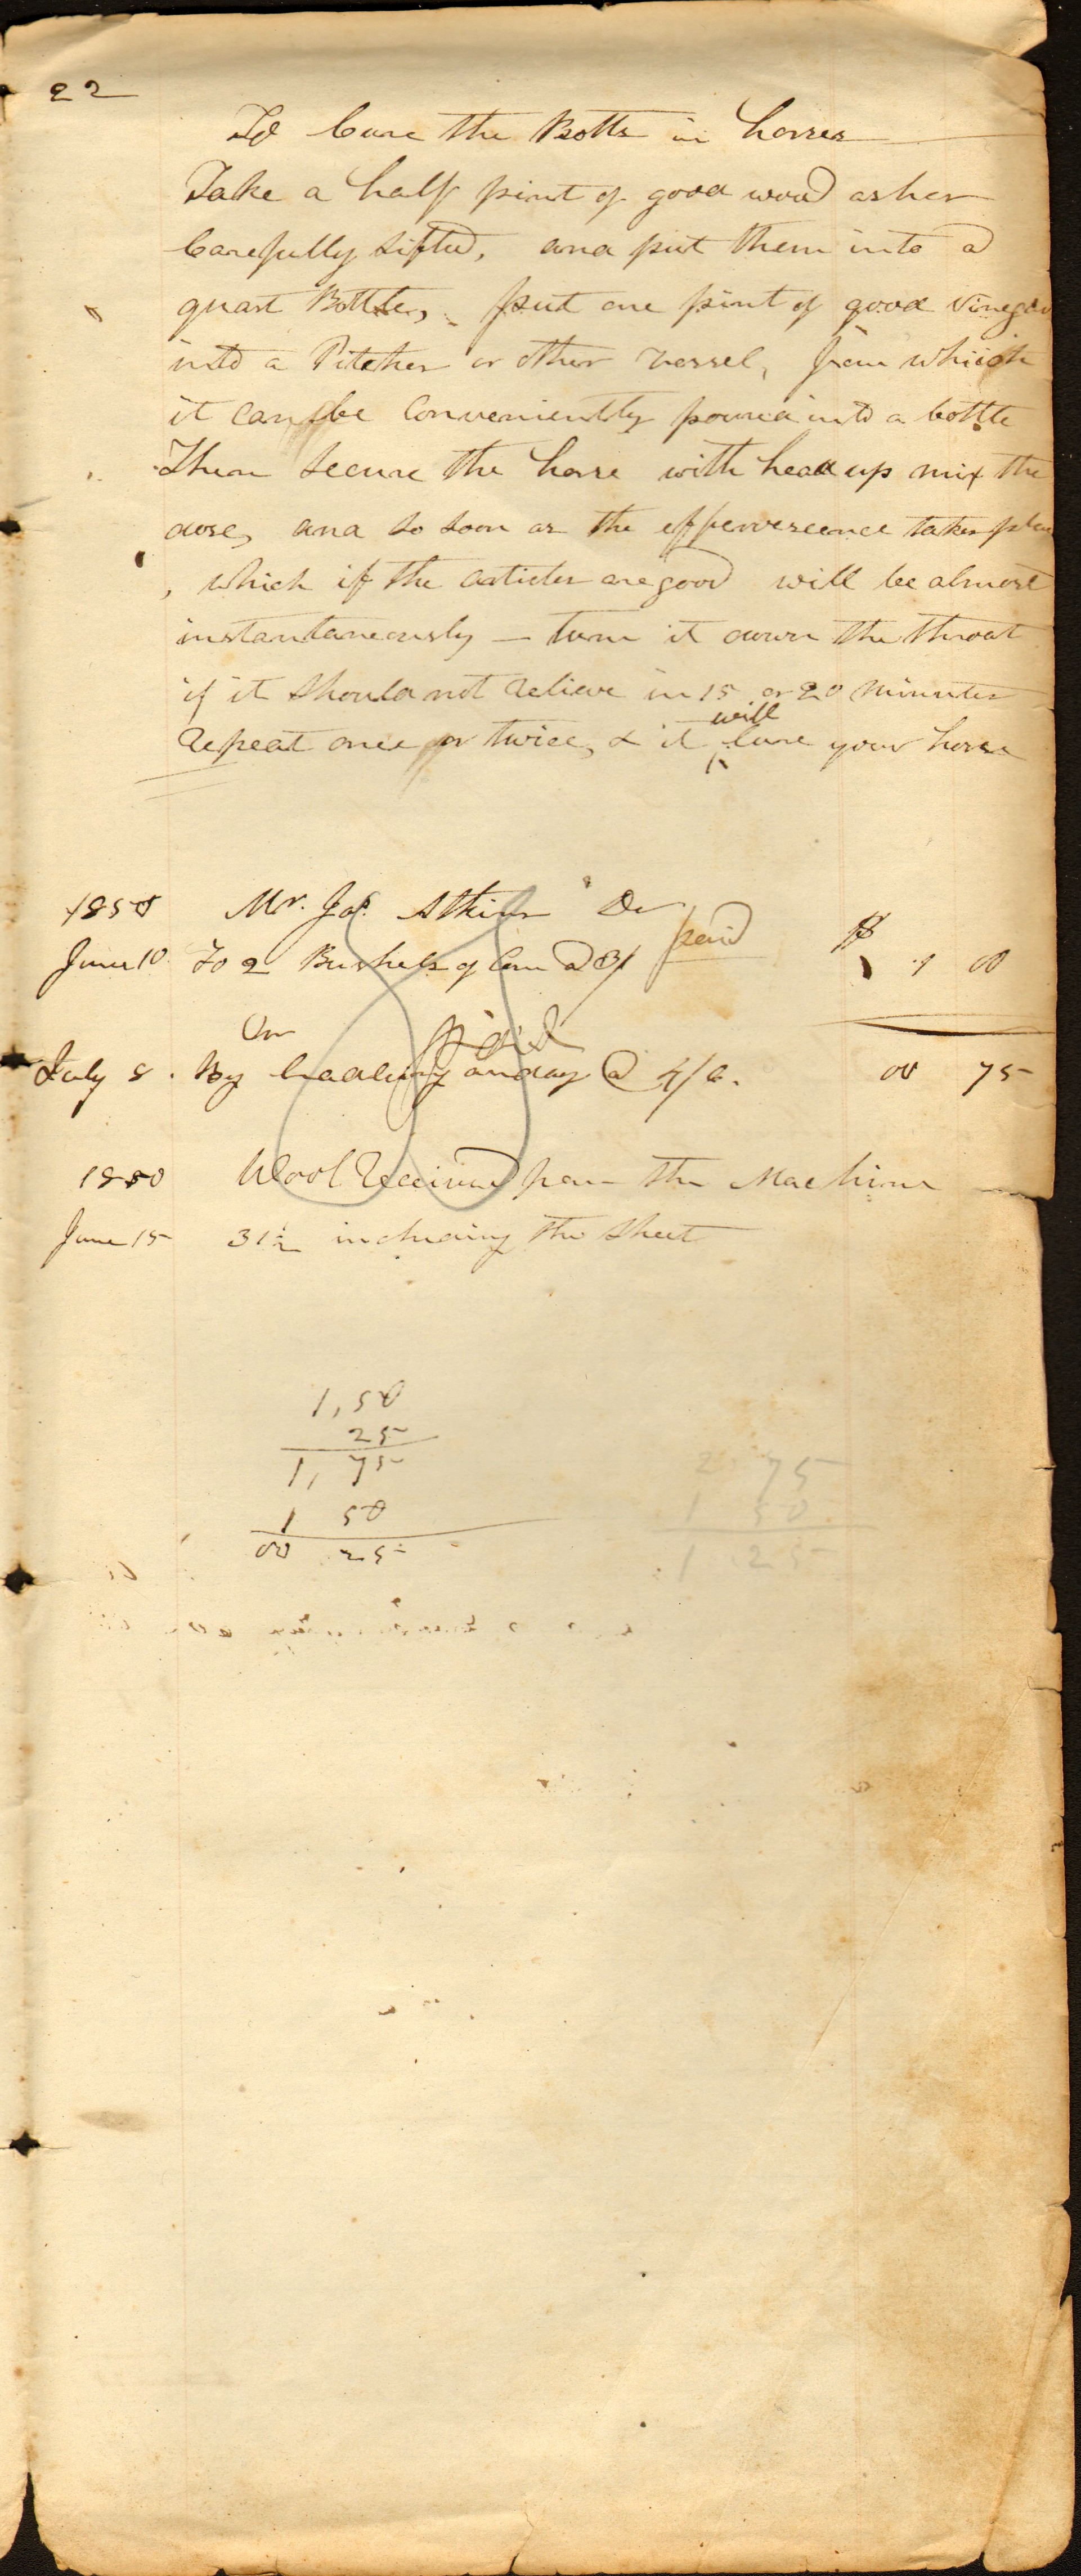 22
To Cure the Botts in horses
Take a half pint of good wood ashes
Carefully sifted, and put them into a
quart Bottle, put one pint of good Vinegar
into a Pitcher or other vessel, from which
it can be Conveniently poured into a bottle
Then secure the horse with head up mix the
dose, and so soon as the effervescence takes place
, which if the articles are good will be almost
instantaneously — turn it down the throat
if it should not relieve in 15 or 20 minutes
will
Repeat once or twice, & it ^ Cure your horse
1850 Mr. Jas. Atkins Dr
paid
$
June 10 To 2 Bushels of Corn @ 3/ 1 00
Cr paid
July 8. By one day @ 4/6. 00 75
1850 Wool Received from the Machine
June 15 31½ including the sheet
1,50
25
1,75
1 50
00 25
2 75
1 50
1 25